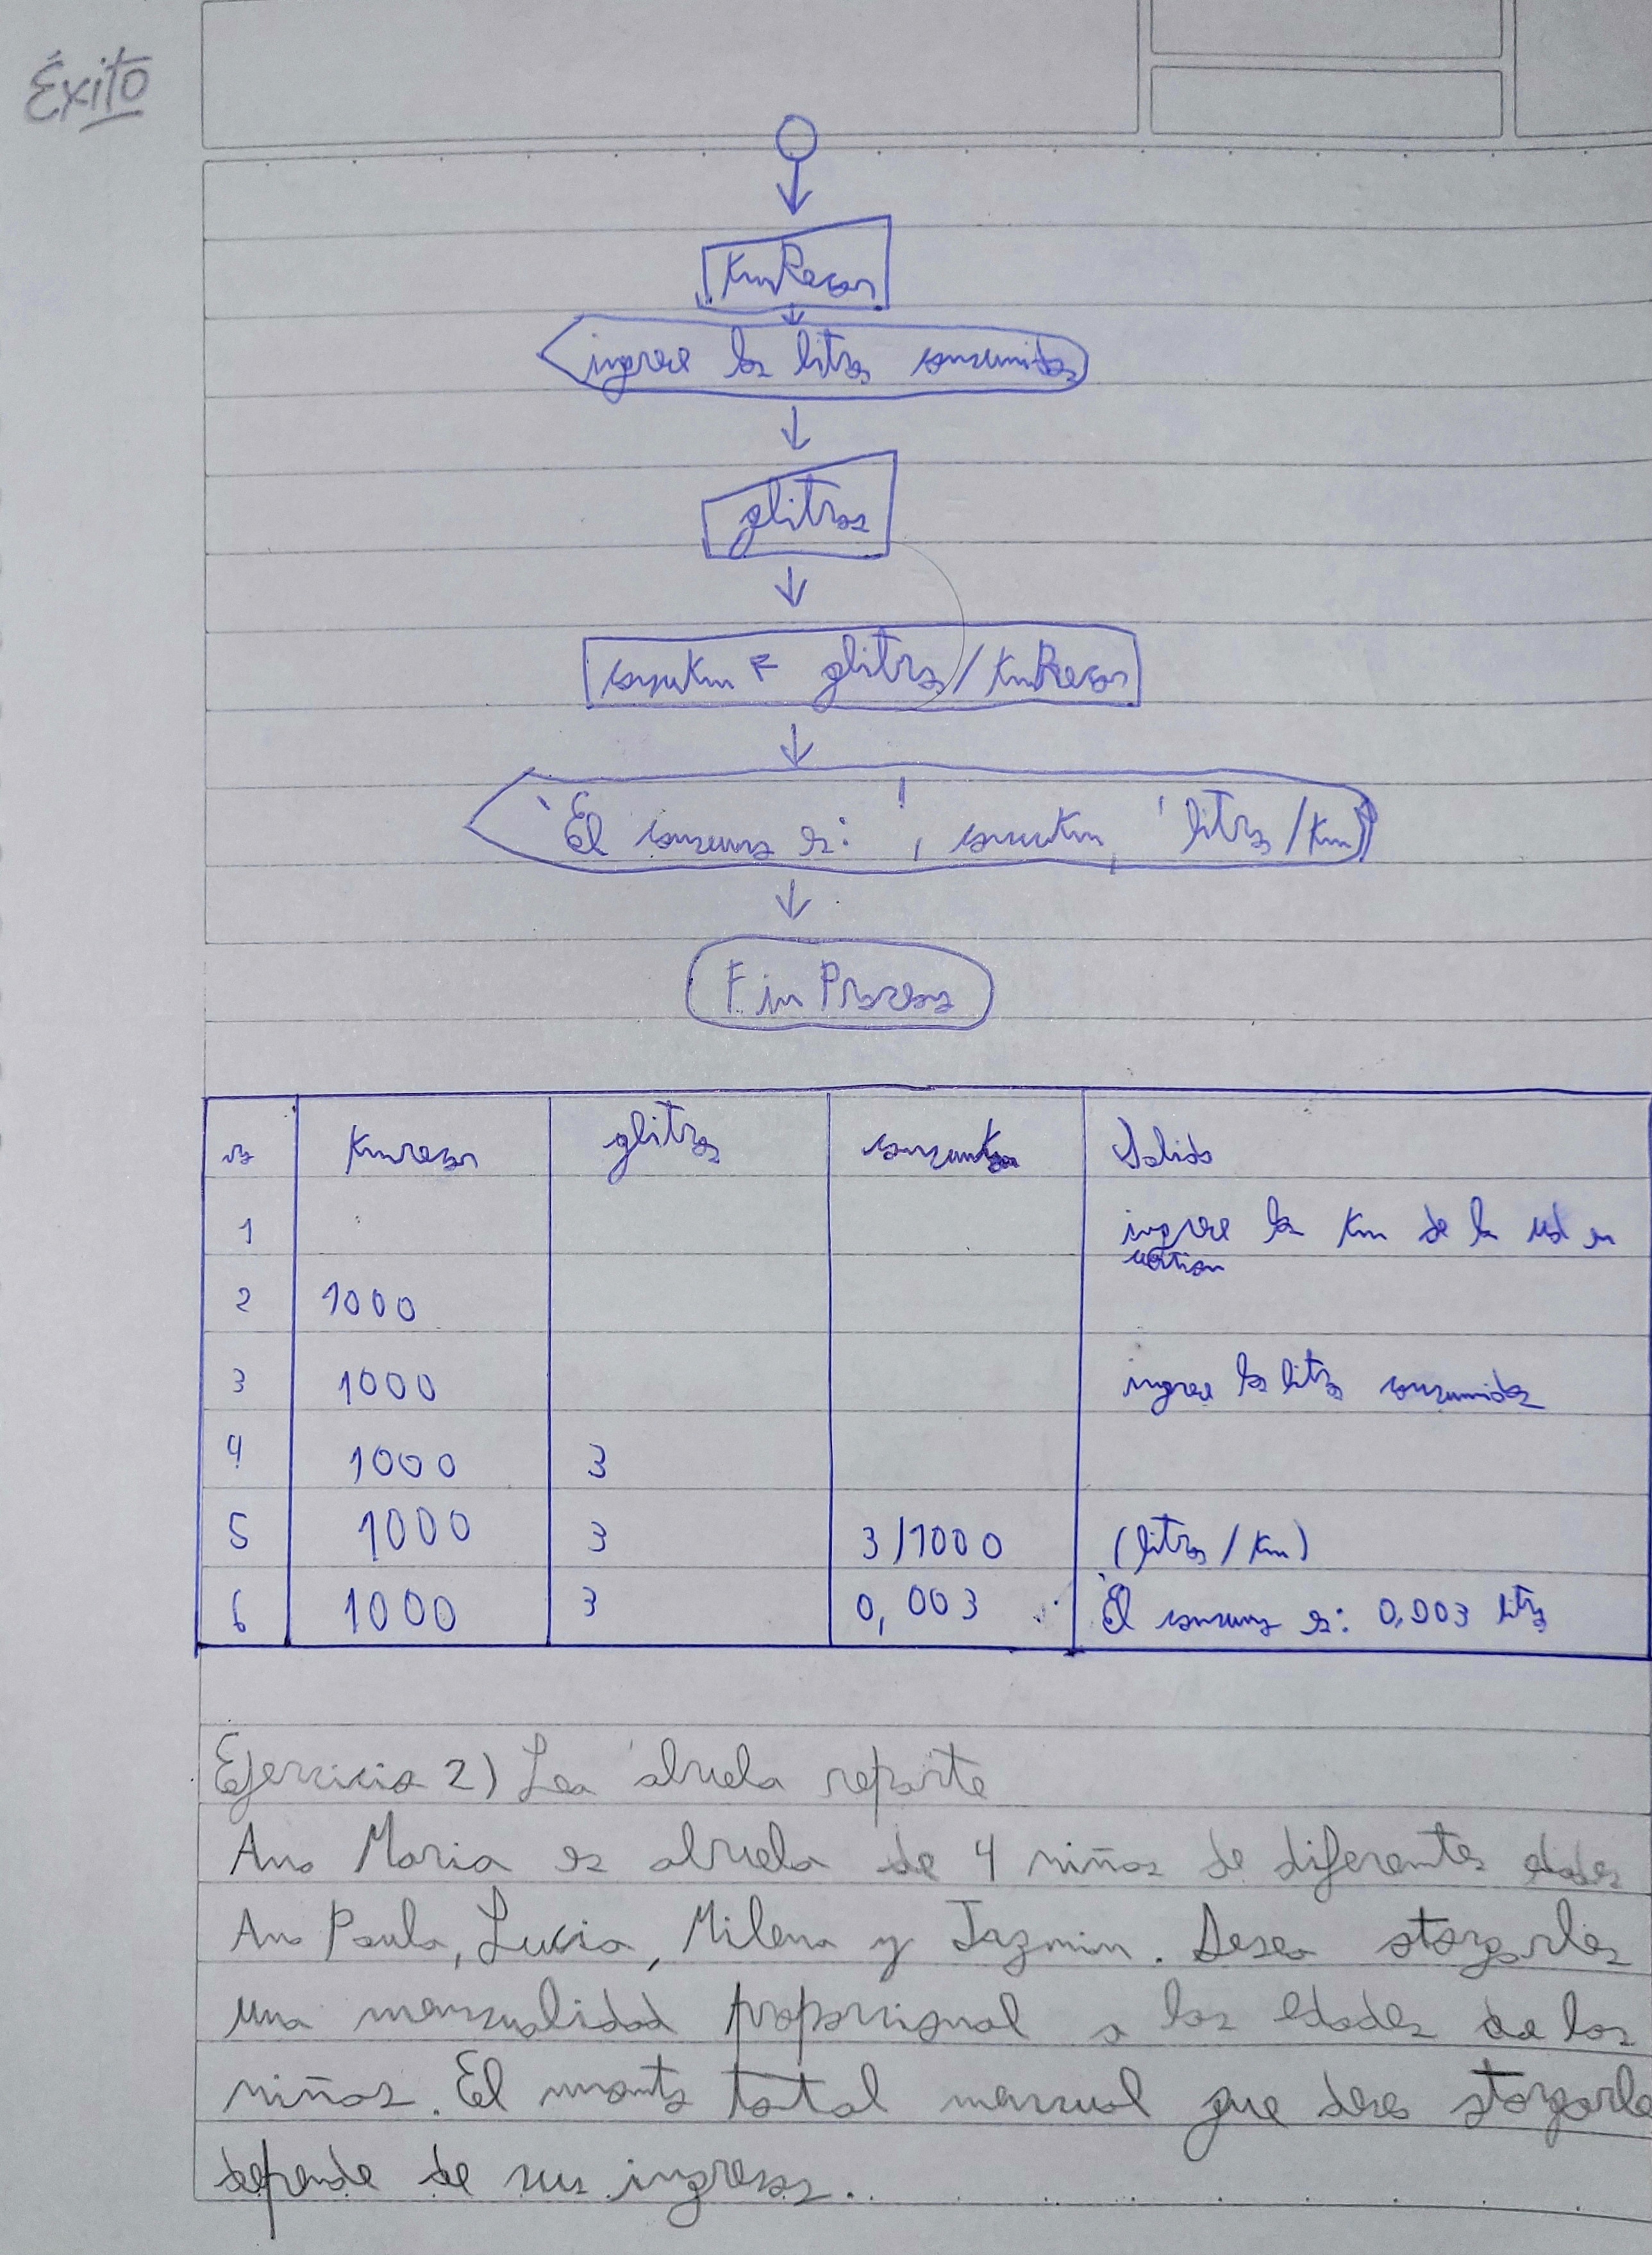 Éxito
KmRecor
ingrese los litros consumidos
glitros
consuKm ← glitros/KmRecor
'El consumo es: ', consuKm, 'litros/Km'
FinProceso
no Kmrecor glitros consumkm Salida
1 ingrese los Km de la ud en
cuestion
2 1000
3 1000 ingrese los litros consumidos
4 1000 3
5 1000 3 3/1000 (litros/Km)
6 1000 3 0,003 El consumo es: 0,003 litros
Ejercicio 2) Lea abuela reparte
Ana Maria es abuela de 4 niños de diferentes edades
Ana Paula, Lucia, Milena y Jazmin. Desea otorgarles
una mensualidad proporcional a las edades de los
niños. El monto total mensual que desea otorgarle
depende de sus ingresos.